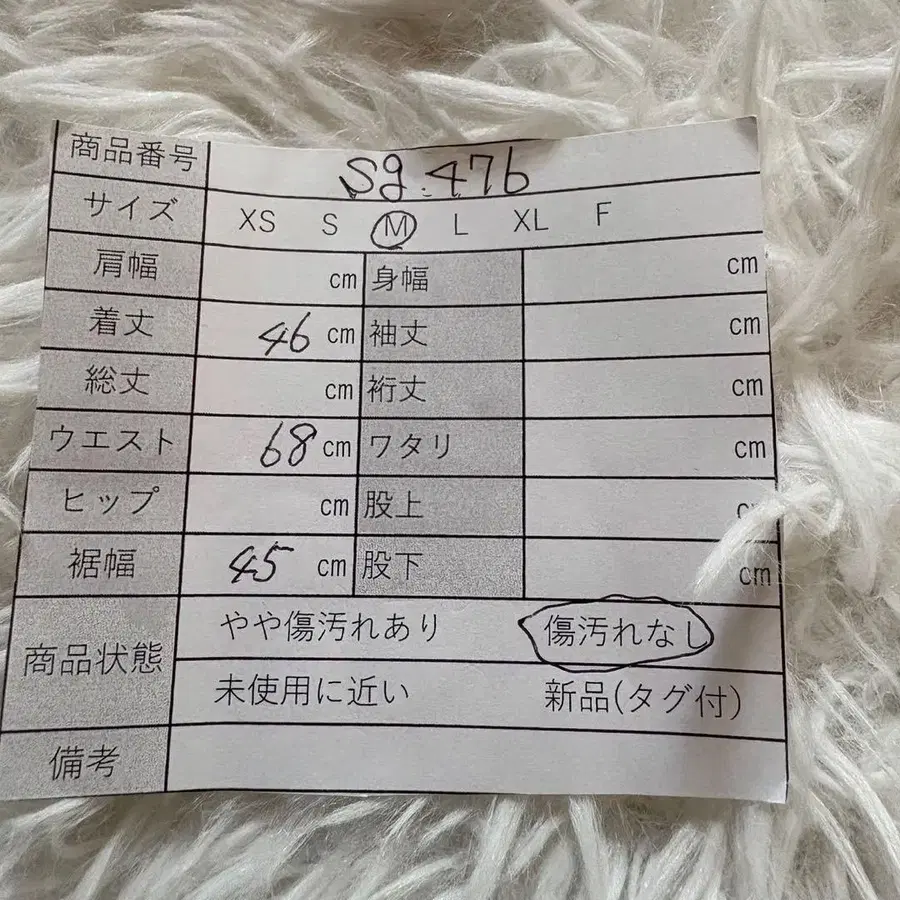 商品番号 Sg.476
サイズ XS S M L XL F
肩幅 cm 身幅 cm
着丈 46 cm 袖丈 cm
総丈 cm 裄丈 cm
ウエスト 68 cm ワタリ cm
ヒップ cm 股上 cm
裾幅 45 cm 股下 cm
商品状態 やや傷汚れあり 傷汚れなし
未使用に近い 新品(タグ付)
備考